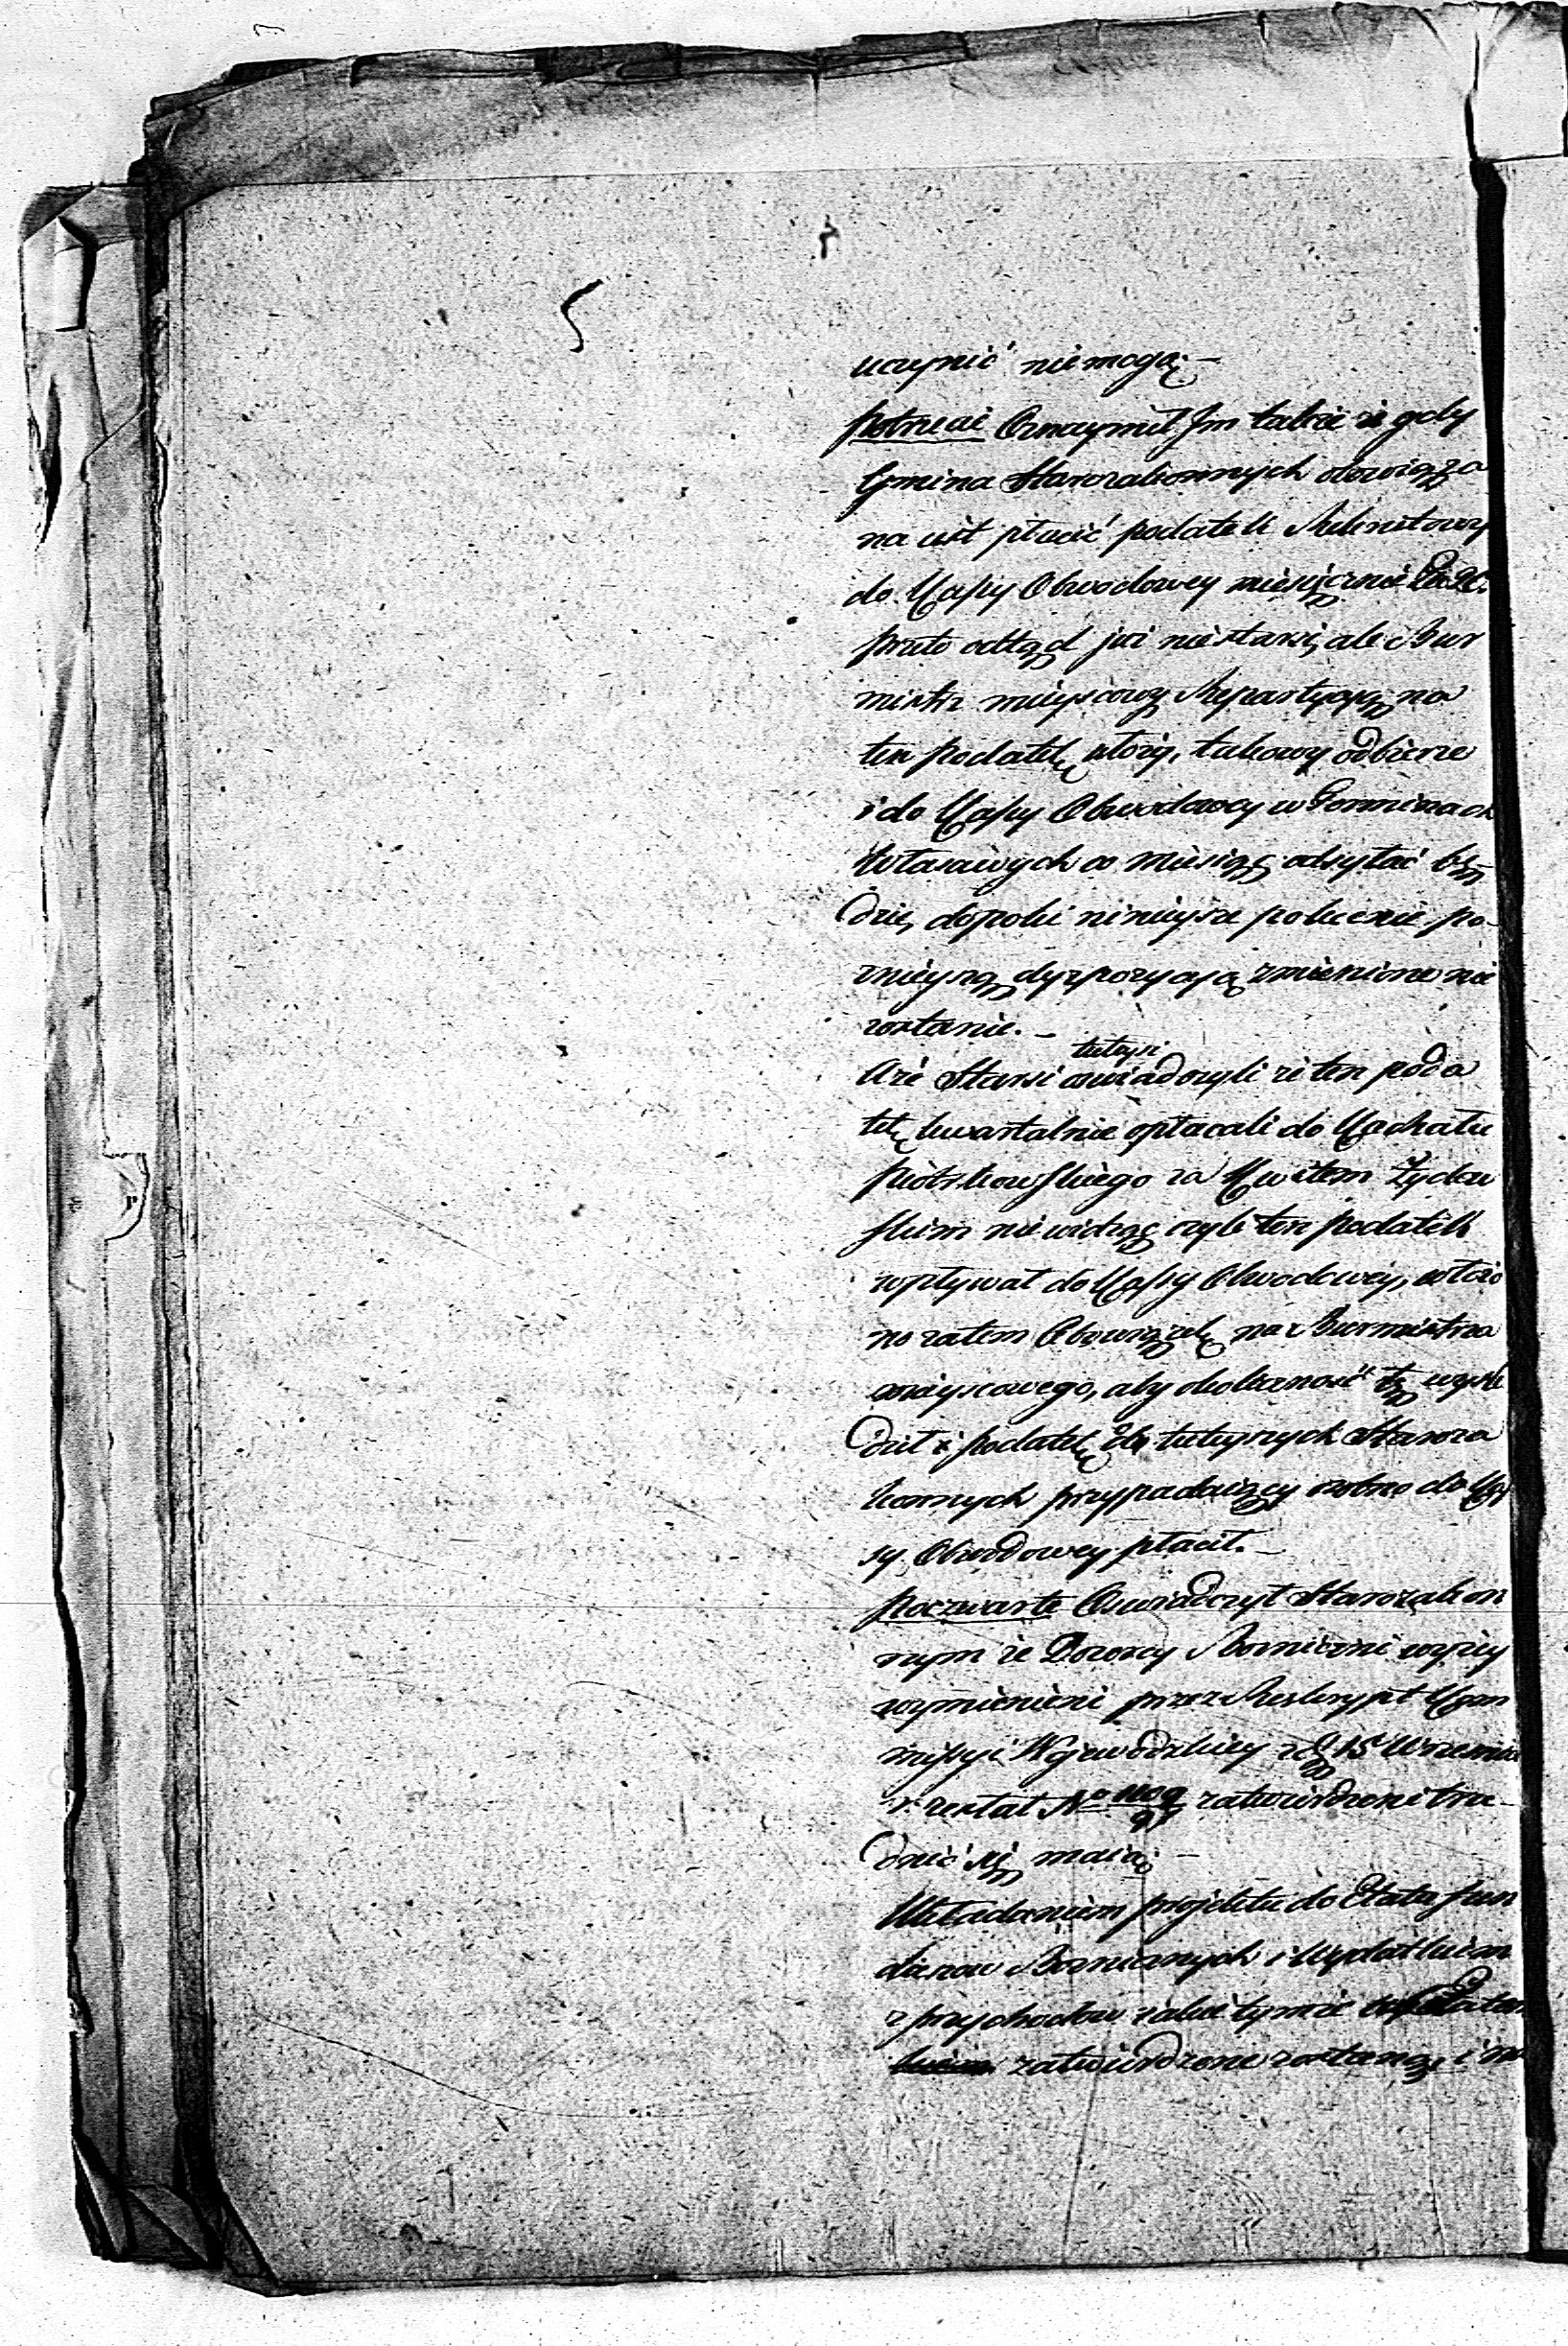 uczynić niemogą. –
potrzecie Oznaymił Im także że gdy
Gmina Starozakonnych obowiąza
na iest płacić podatek Rekrutowy
do Kassy Obwodowey miesięcznie
przeto odtąd już nie starsi, ale Bur
mistrz mieyscowy Repartycyę na
ten podatek ułoży, takowy odbierze
i do Kassy Obwodowey w Terminach
właściwych co miesiąc odsyłać bę
dzie, dopoki ninieysze polecenie po
znieyszą dyspozycyą zmienione nie
zostanie. –
tuteysi
Aże Starsi oswiadczyli że ten poda
tek kwartalnie opłacali do Kachału
Piotrkowskiego za Kwitem Żydow
skim nie widząc czyli ten podatek
wpływał do Kassy Obwodowey, włożo
no zatem Obowiązek na Burmistrza
mieyscowego, aby okoliczność tę wyśle
dził i podatek od tuteyszych Staroza
konnych przypadaiący wolno do Kas
sy Obwodowey płacił. –
poczwarte Oswiadczył Starozakon
nym że Dozorcy Bozniczni wyżey
wymienieni przez Reskrypt Kom
missyi Wojewodzkiey z d. 15 Wrzesnia
zatwierdzeni tru
dnić się maią. –
Układaniem projektu do Etatu fun
duszow Boznicznych i Wydatkiem
z przychodow iakie tymże
zatwierdzone zostaną, i na